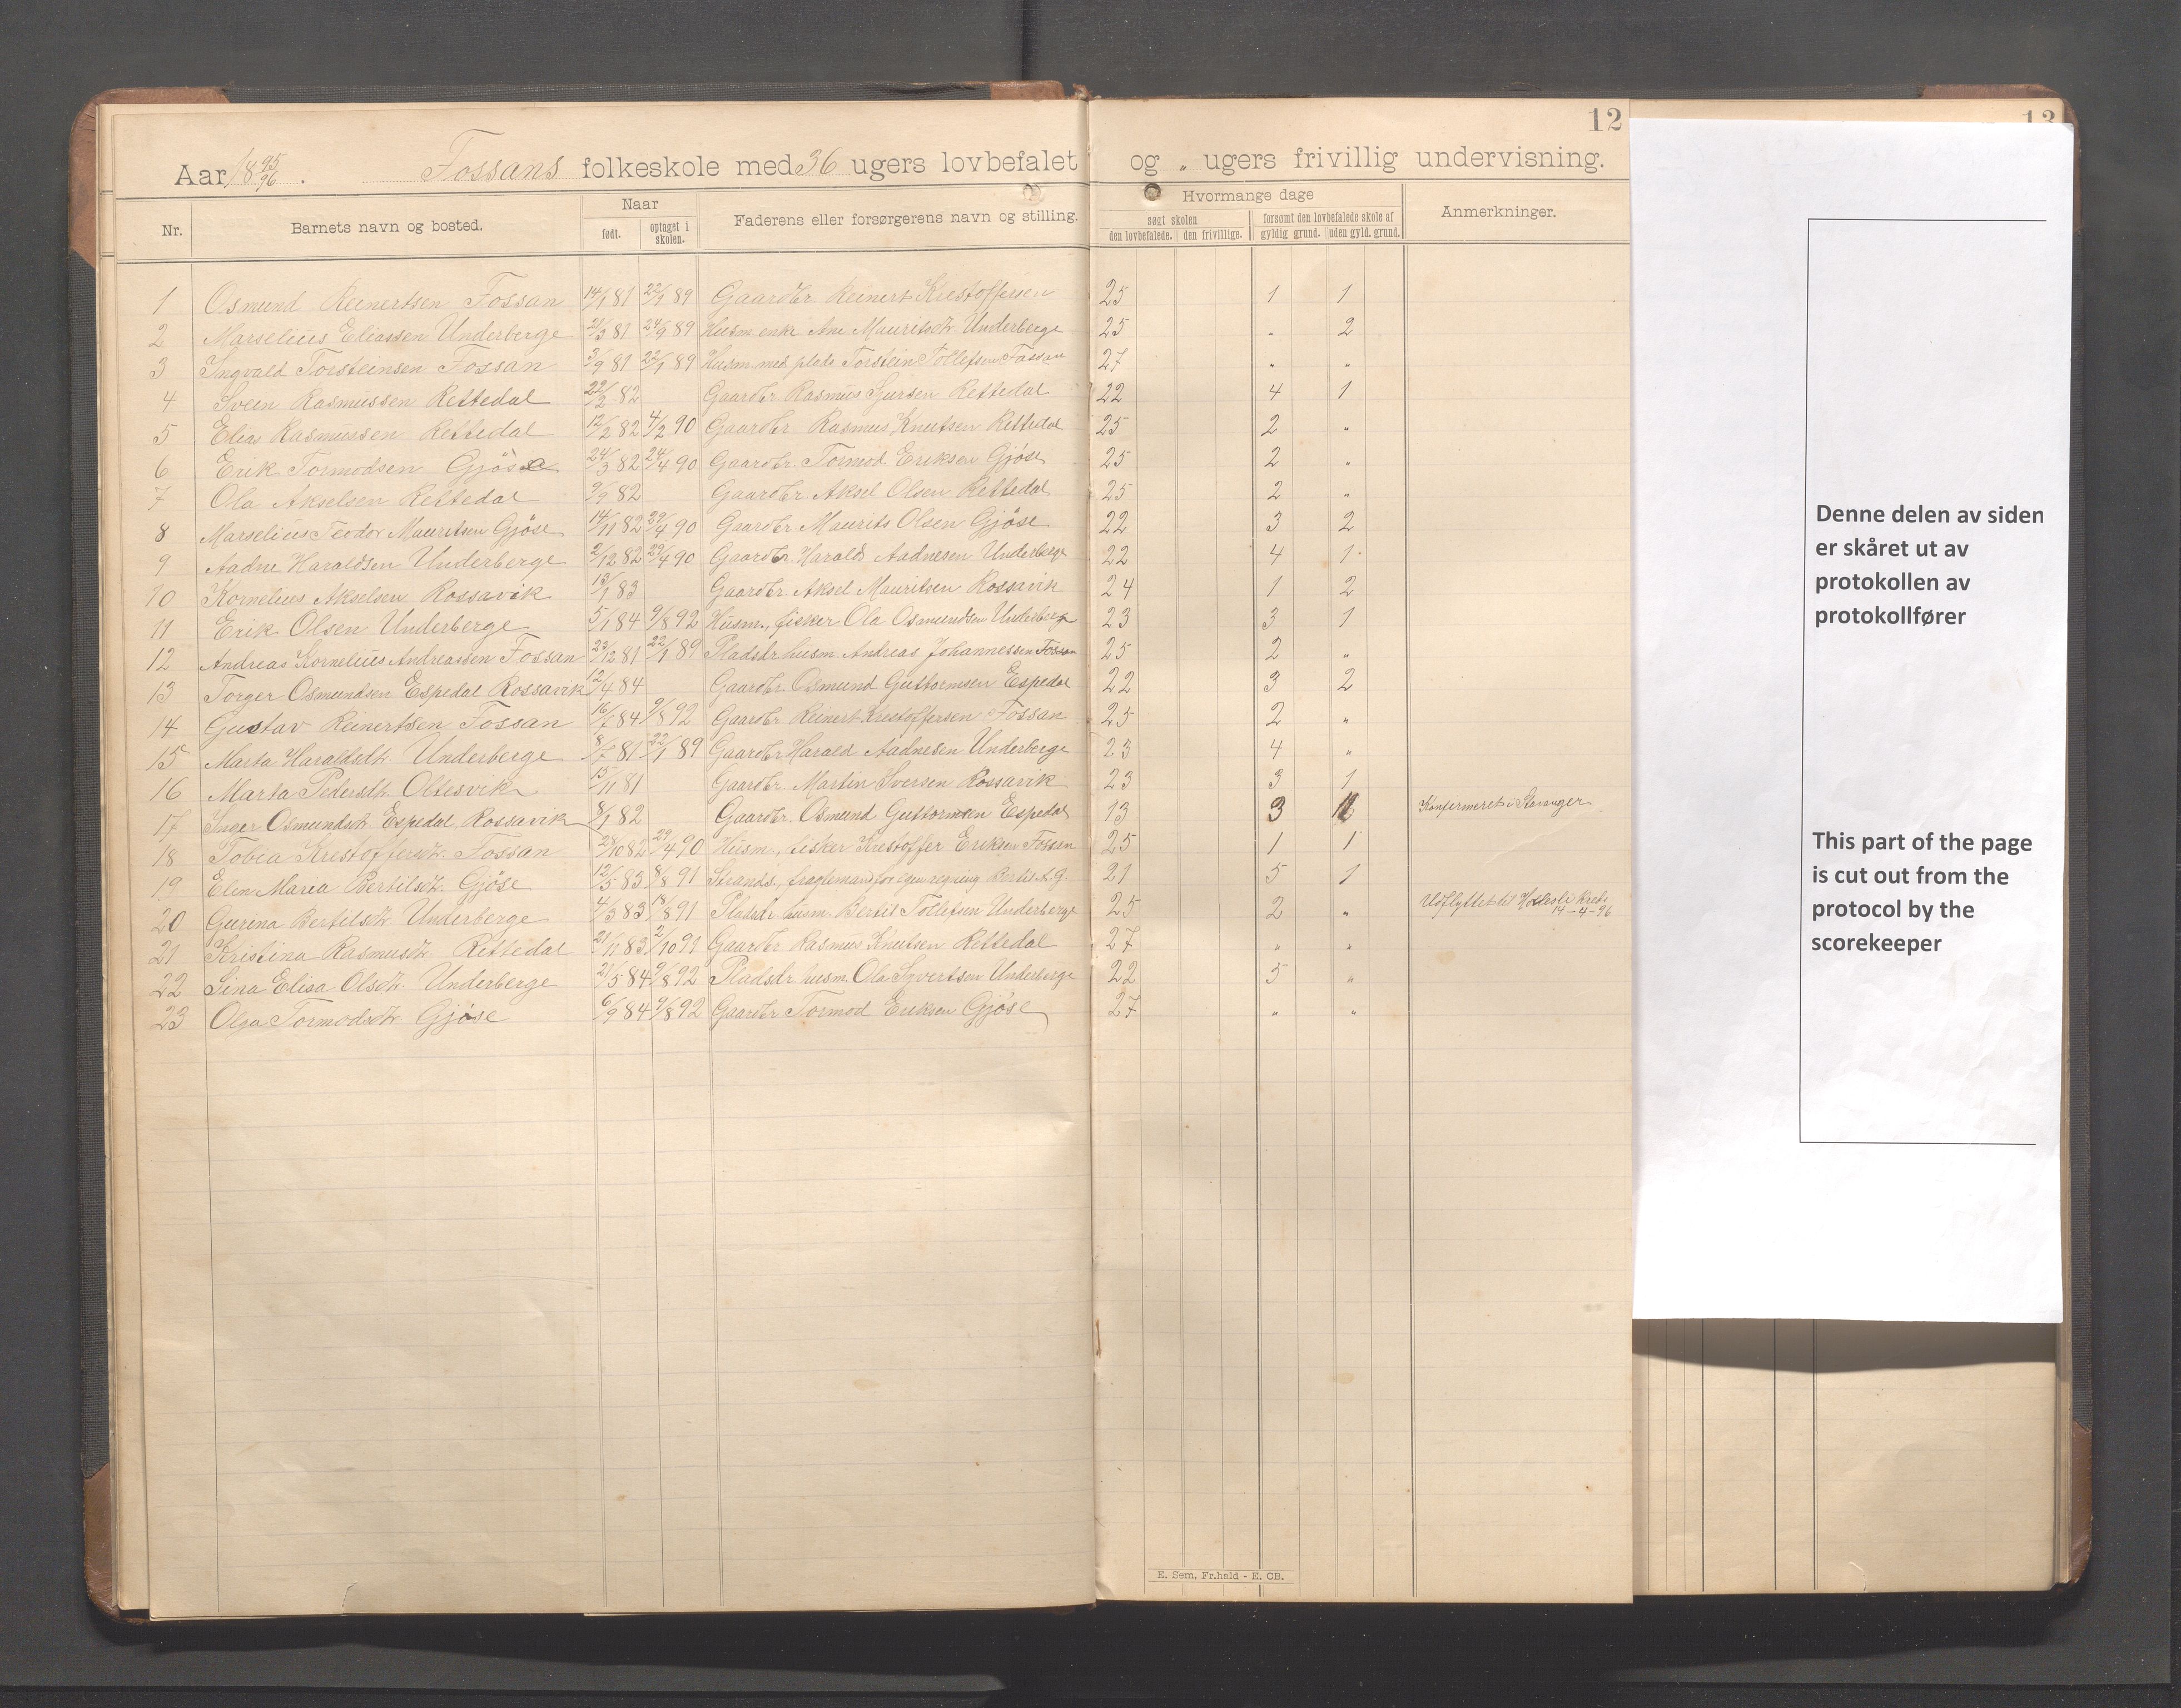 12
13
Aar 18 95/96. Fossans folkeskole med 36 ugers lovbefalet og „ ugers frivillig undervisning.
Nr. Barnets navn og bosted. Naar født. optaget i skolen. Faderens eller forsørgerens navn og stilling. Hvormange dage søgt skolen den lovbefalede. den frivillige. forsømt den lovbefalede skole af gyldig grund. uden gyld. grund. Anmerkninger.
1 Osmund Reinertsen Fossan 14/1 81 22/1 89 Gaardbr. Reinert Kristoffersen 25 1 1
2 Marselius Eliassen Underberge 21/3 81 24/9 89 Husm. enke Ane Mauritsdt. Underberge 25 „ 2
3 Ingvald Torsteinsen Fossan 3/9 81 22/1 89 Husm. med plads Torstein Tollefsen Fossan 27 „ „
4 Sveen Rasmussen Rettedal 22/2 82 Gaardbr. Rasmus Sjursen Rettedal 22 4 1
5 Elias Rasmussen Rettedal 12/2 82 4/2 90 Gaardbr. Rasmus Knutsen Rettedal 25 2 „
6 Erik Tormodsen Gjöse 24/3 82 24/4 90 Gaardbr. Tormod Eriksen Gjöse 25 2 „
7 Ola Akselsen Rettedal 9/9 82 Gaardbr. Aksel Olsen Rettedal 25 2 „
8 Marselius Teodor Mauritsen Gjöse 14/11 82 29/4 90 Gaardbr. Maurits Olsen Gjöse 22 3 2
9 Aadne Haraldsen Underberge 2/12 82 29/4 90 Gaardbr. Harald Aadnesen Underberge 22 4 1
10 Kornelius Akselsen Rossavik 13/1 83 Gaardbr. Aksel Mauritsen Rossavik 24 1 2
11 Erik Olsen Underberge 5/1 84 9/8 92 Husm., fisker Ola Osmundsen Underberge 23 3 1
12 Andreas Kornelius Andreassen Fossan 23/12 81 22/1 89 Pladsbr. husm. Andreas Johannessen Fossan 25 2 „
13 Torger Osmundsen Espedal Rossavik 12/4 84 Gaardbr. Osmund Guttormsen Espedal 22 3 2
14 Gustav Reinertsen Fossan 16/7 84 9/8 92 Gaardbr. Reinert Krestoffersen Fossan 25 2 „
15 Marta Haraldsdt. Underberge 8/7 81 22/1 89 Gaardbr. Harald Aadnesen Underberge 23 4 „
16 Marta Pedersdt. Oltesvik 15/11 81 Gaardbr. Martin Sversen Rossavik 23 3 1
17 Inger Osmundsdt. Espedal Rossavik 8/1 82 Gaardbr. Osmund Guttormsen Espedal 13 3 Konfirmeret i Stavanger
18 Tobea Krestoffersdt. Fossan 28/10 82 29/4 90 Husm., fisker Krestoffer Eriksen Fossan 25 1 1
19 Elen Maria Bertilsdt. Gjöse 12/5 83 8/8 91 Strands., fragtemand for egen regning Bertil A. G. 21 5 1
20 Gurina Bertilsdt. Underberge 4/3 83 18/8 91 Pladsbr. husm. Bertil Tollefsen Underberge 25 2 „ Udflyttet til Holleslie Kreds
14-4-96
21 Kristina Rasmusdt. Rettedal 21/11 83 2/10 91 Gaardbr. Rasmus Knutsen Rettedal 27 „ „
22 Sina Elisa Olsdt. Underberge 21/5 84 9/8 92 Pladsbr. husm. Ola Syvertsen Underberge 22 5 „
23 Olga Tormodsdt. Gjöse 6/9 84 9/8 92 Gaardbr. Tormod Eriksen Gjöse 27 „ „
E. Sem, Fr.hald - E. CB.
Denne delen av siden
er skåret ut av
protokollen av
protokollfører
This part of the page
is cut out from the
protocol by the
scorekeeper